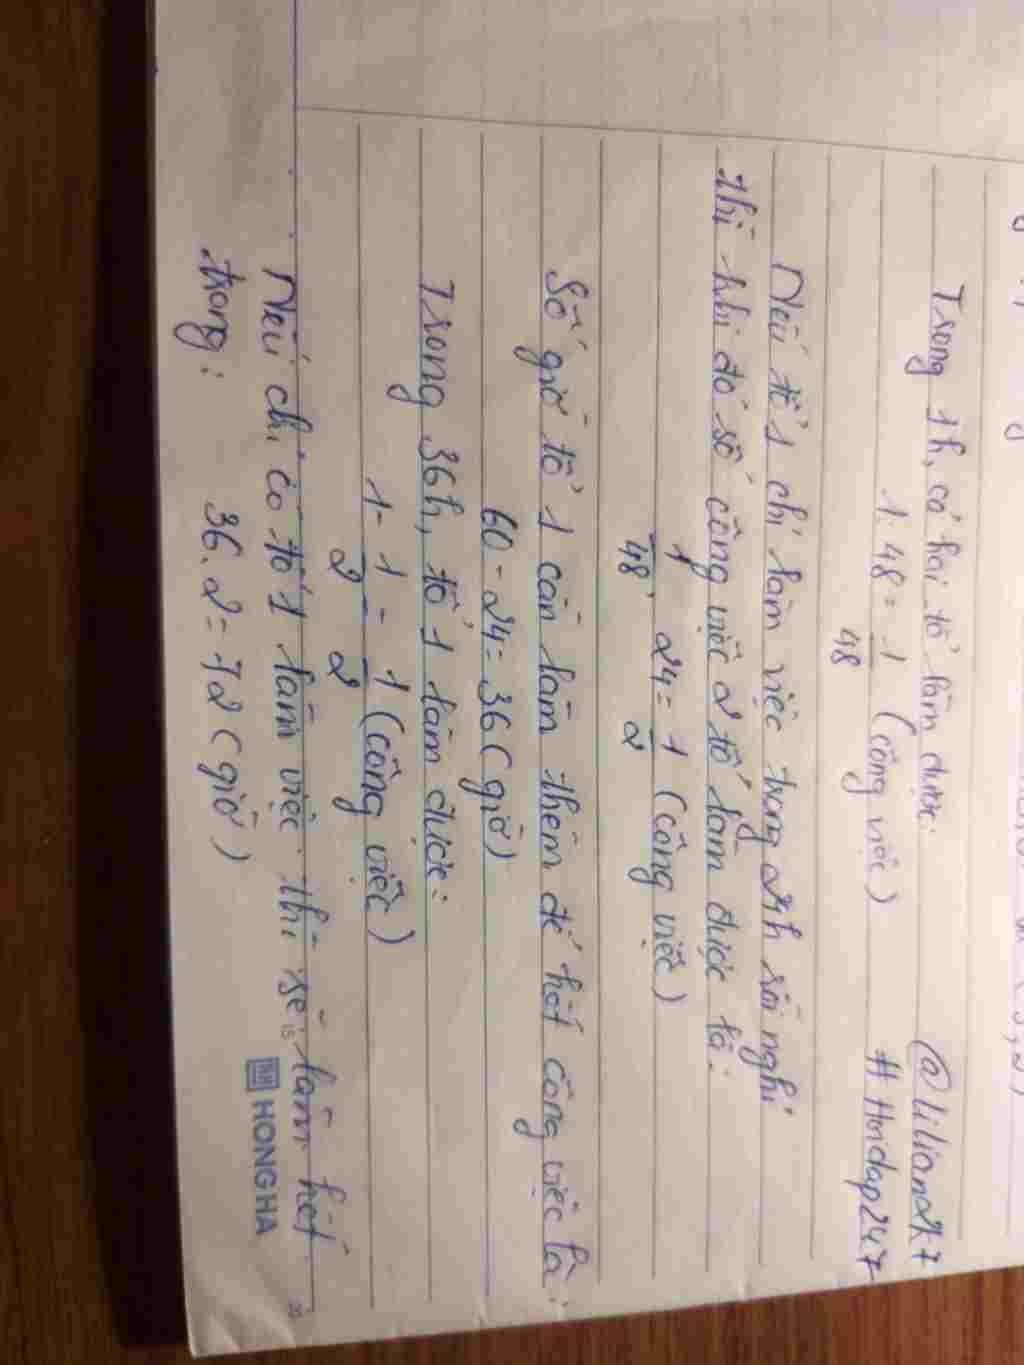 Trong 1h, cả hai tổ làm được: @lilian2k7
1:48 = 1/48 (công việc) #Hoidap247
Nếu tổ 1 chỉ làm việc trong 24h rồi nghỉ
thì khi đó số công việc 2 tổ làm được là:
1/48 . 24 = 1/2 (công việc)
Số giờ tổ 1 cần làm thêm để hết công việc là:
60 - 24 = 36 (giờ)
Trong 36h, tổ 1 làm được:
1 - 1/2 = 1/2 (công việc)
Nếu chỉ có tổ 1 làm việc thì sẽ làm hết
trong:
36.2 = 72 (giờ)
HONG HA